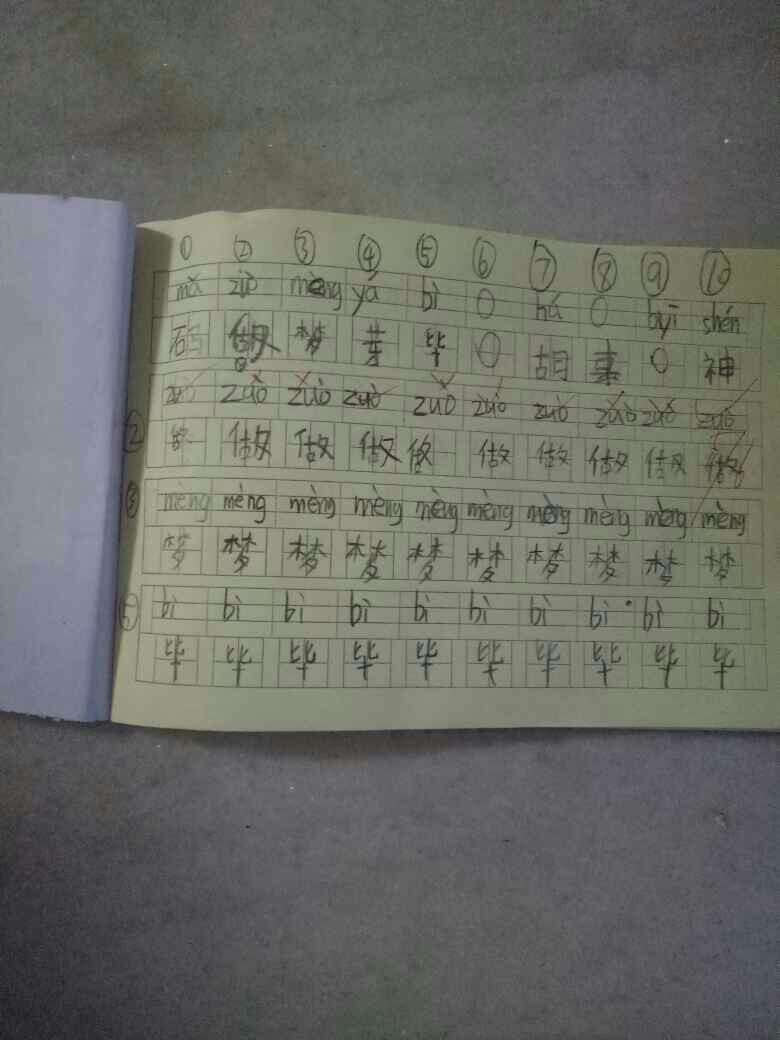 ① ② ③ ④ ⑤ ⑥ ⑦ ⑧ ⑨ ⑩
mǎ zuò mèng yá bì ○ hú ○ shén
码 做 梦 芽 毕 ○ 胡 ○ 神
zuò zuò zuò zuò zuò zuò zuò zuò zuò zuò
② 做 做 做 做 做 做 做 做 做
③ mèng mèng mèng mèng mèng mèng mèng mèng mèng mèng
梦 梦 梦 梦 梦 梦 梦 梦 梦 梦
⑤ bì bì bì bì bì bì bì bì bì bì
毕 毕 毕 毕 毕 毕 毕 毕 毕 毕